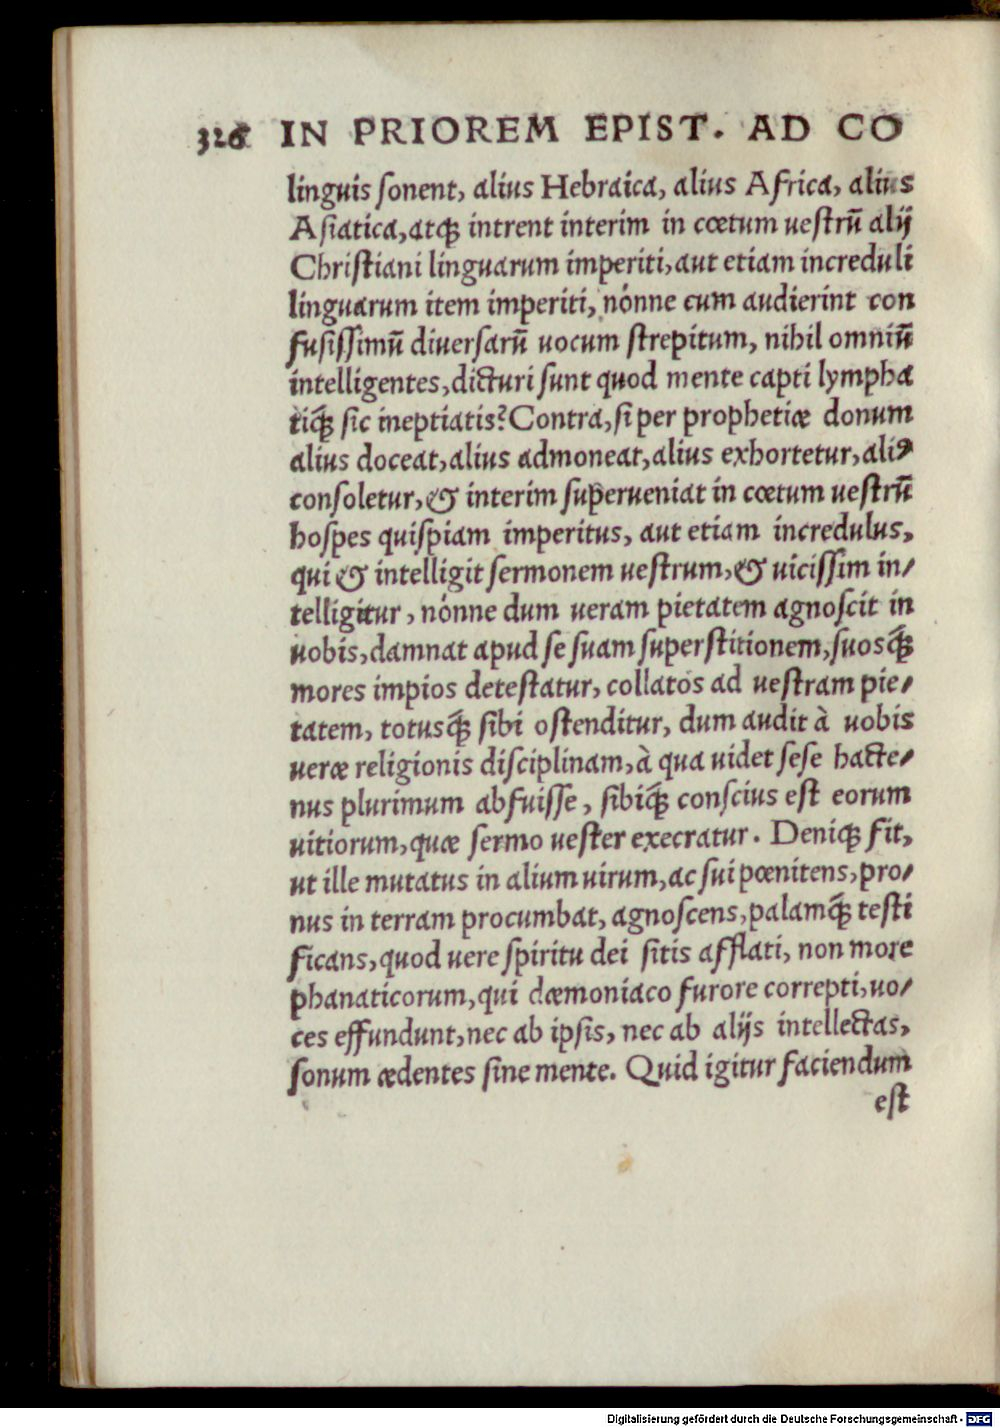 326 IN PRIOREM EPIST. AD CO
linguis ſonent, alius Hebraica, alius Africa, alius
Aſiatica, atqꝫ intrent interim in cœtum ueſtrũ alij
Chriſtiani linguarum imperiti, aut etiam increduli
linguarum item imperiti, nónne cum audierint con
fuſiſſimũ diuerſarũ uocum ſtrepitum, nihil omniũ
intelligentes, dicturi ſunt quod mente capti lympha
tiq́ꝫ ſic ineptiatis? Contra, ſi per prophetiæ donum
alius doceat, alius admoneat, alius exhortetur, aliꝰ
conſoletur, & interim ſuperueniat in cœtum ueſtrũ
hoſpes quiſpiam imperitus, aut etiam incredulus,
qui & intelligit ſermonem ueſtrum, & uiciſſim in/
telligitur, nónne dum ueram pietatem agnoſcit in
uobis, damnat apud ſe ſuam ſuperſtitionem, ſuosq́ꝫ
mores impios deteſtatur, collatos ad ueſtram pie/
tatem, totusq́ꝫ ſibi oſtenditur, dum audit à uobis
ueræ religionis diſciplinam, à qua uidet ſeſe hacte/
nus plurimum abfuiſſe, ſibiq́ꝫ conſcius eſt eorum
uitiorum, quæ ſermo ueſter execratur. Deniqꝫ fit,
ut ille mutatus in alium uirum, ac ſui pœnitens, pro/
nus in terram procumbat, agnoſcens, palamq́ꝫ teſti
ficans, quod uere ſpiritu dei ſitis afflati, non more
phanaticorum, qui dæmoniaco furore correpti, uo/
ces effundunt, nec ab ipſis, nec ab alijs intellectas,
ſonum ædentes ſine mente. Quid igitur faciendum
eſt
Digitalisierung gefördert durch die Deutsche Forschungsgemeinschaft - DFG